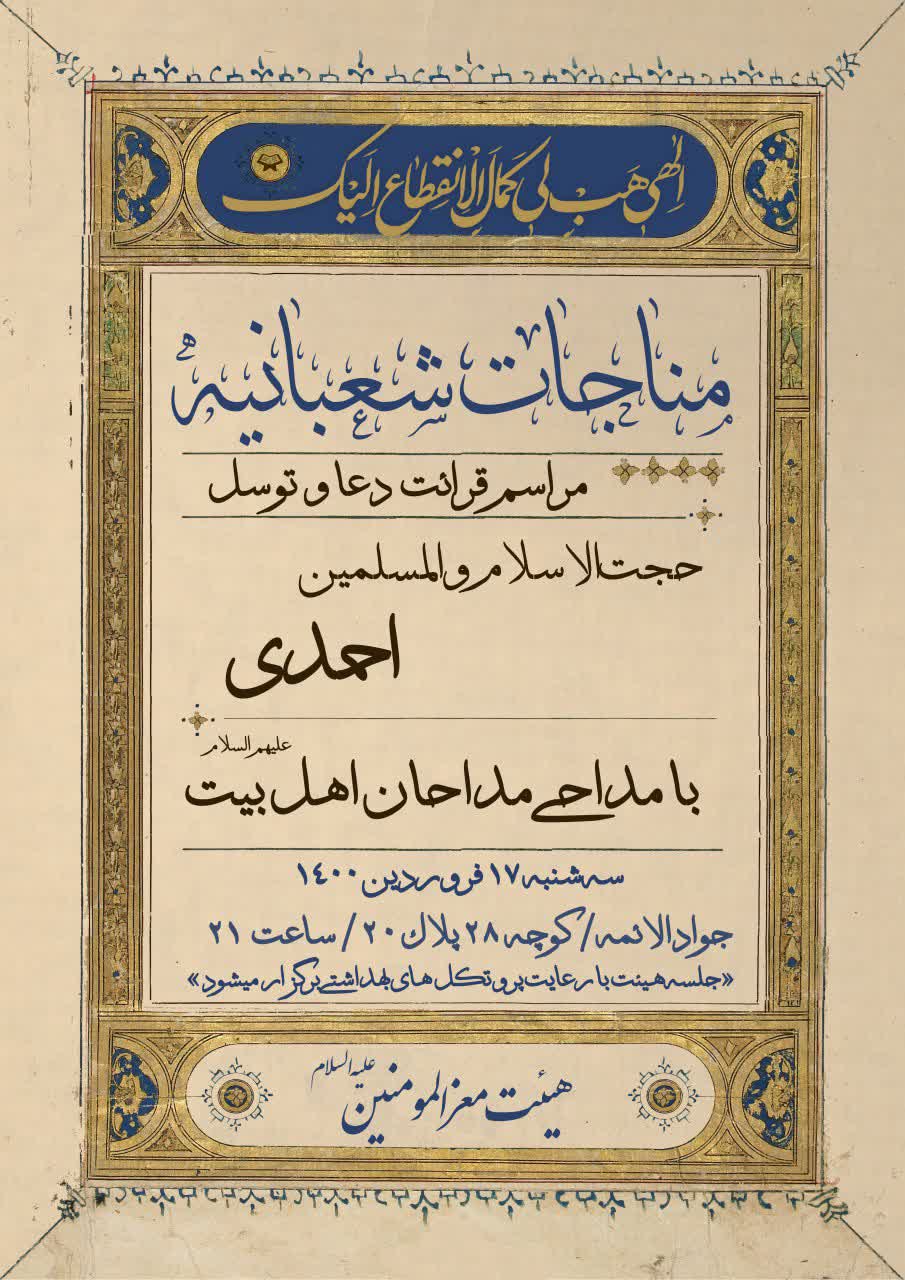 اِلٰهی هَب لی کَمالَ اِلانقِطاعِ اِلَیک
مناجات شعبانیه
مراسم قرائت دعا و توسل
حجت الاسلام والمسلمین
احمدی
علیهم السلام
با مداحی مداحان اهل بیت
سه شنبه ۱۷ فروردین ۱۴۰۰
جوادالائمه / کوچه ۲۸ پلاک ۲۰ / ساعت ۲۱
«جلسه هیئت با رعایت پروتکل های بهداشتی برگزار میشود»
علیه السلام
هیئت معزالمومنین